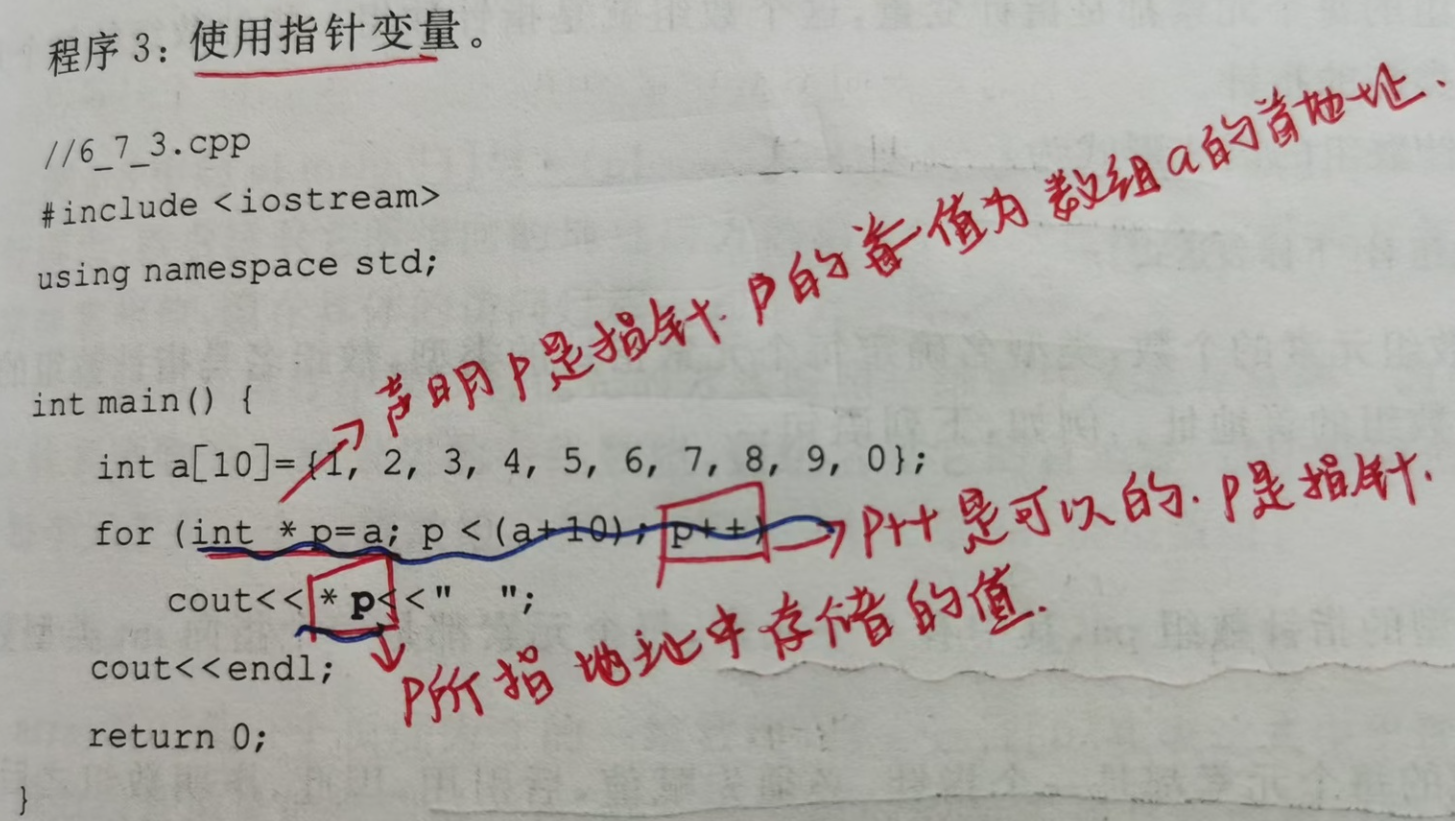 程序 3: 使用指针变量。
//6_7_3.cpp
#include <iostream>
using namespace std;
声明 P是指针. P的首值为数组a的首地址.
int main() {
int a[10]={1, 2, 3, 4, 5, 6, 7, 8, 9, 0};
for (int * p=a; p < (a+10); p++)
P++是可以的. P是指针.
cout<< * p<<" ";
P所指地址中存储的值.
cout<<endl;
return 0;
}